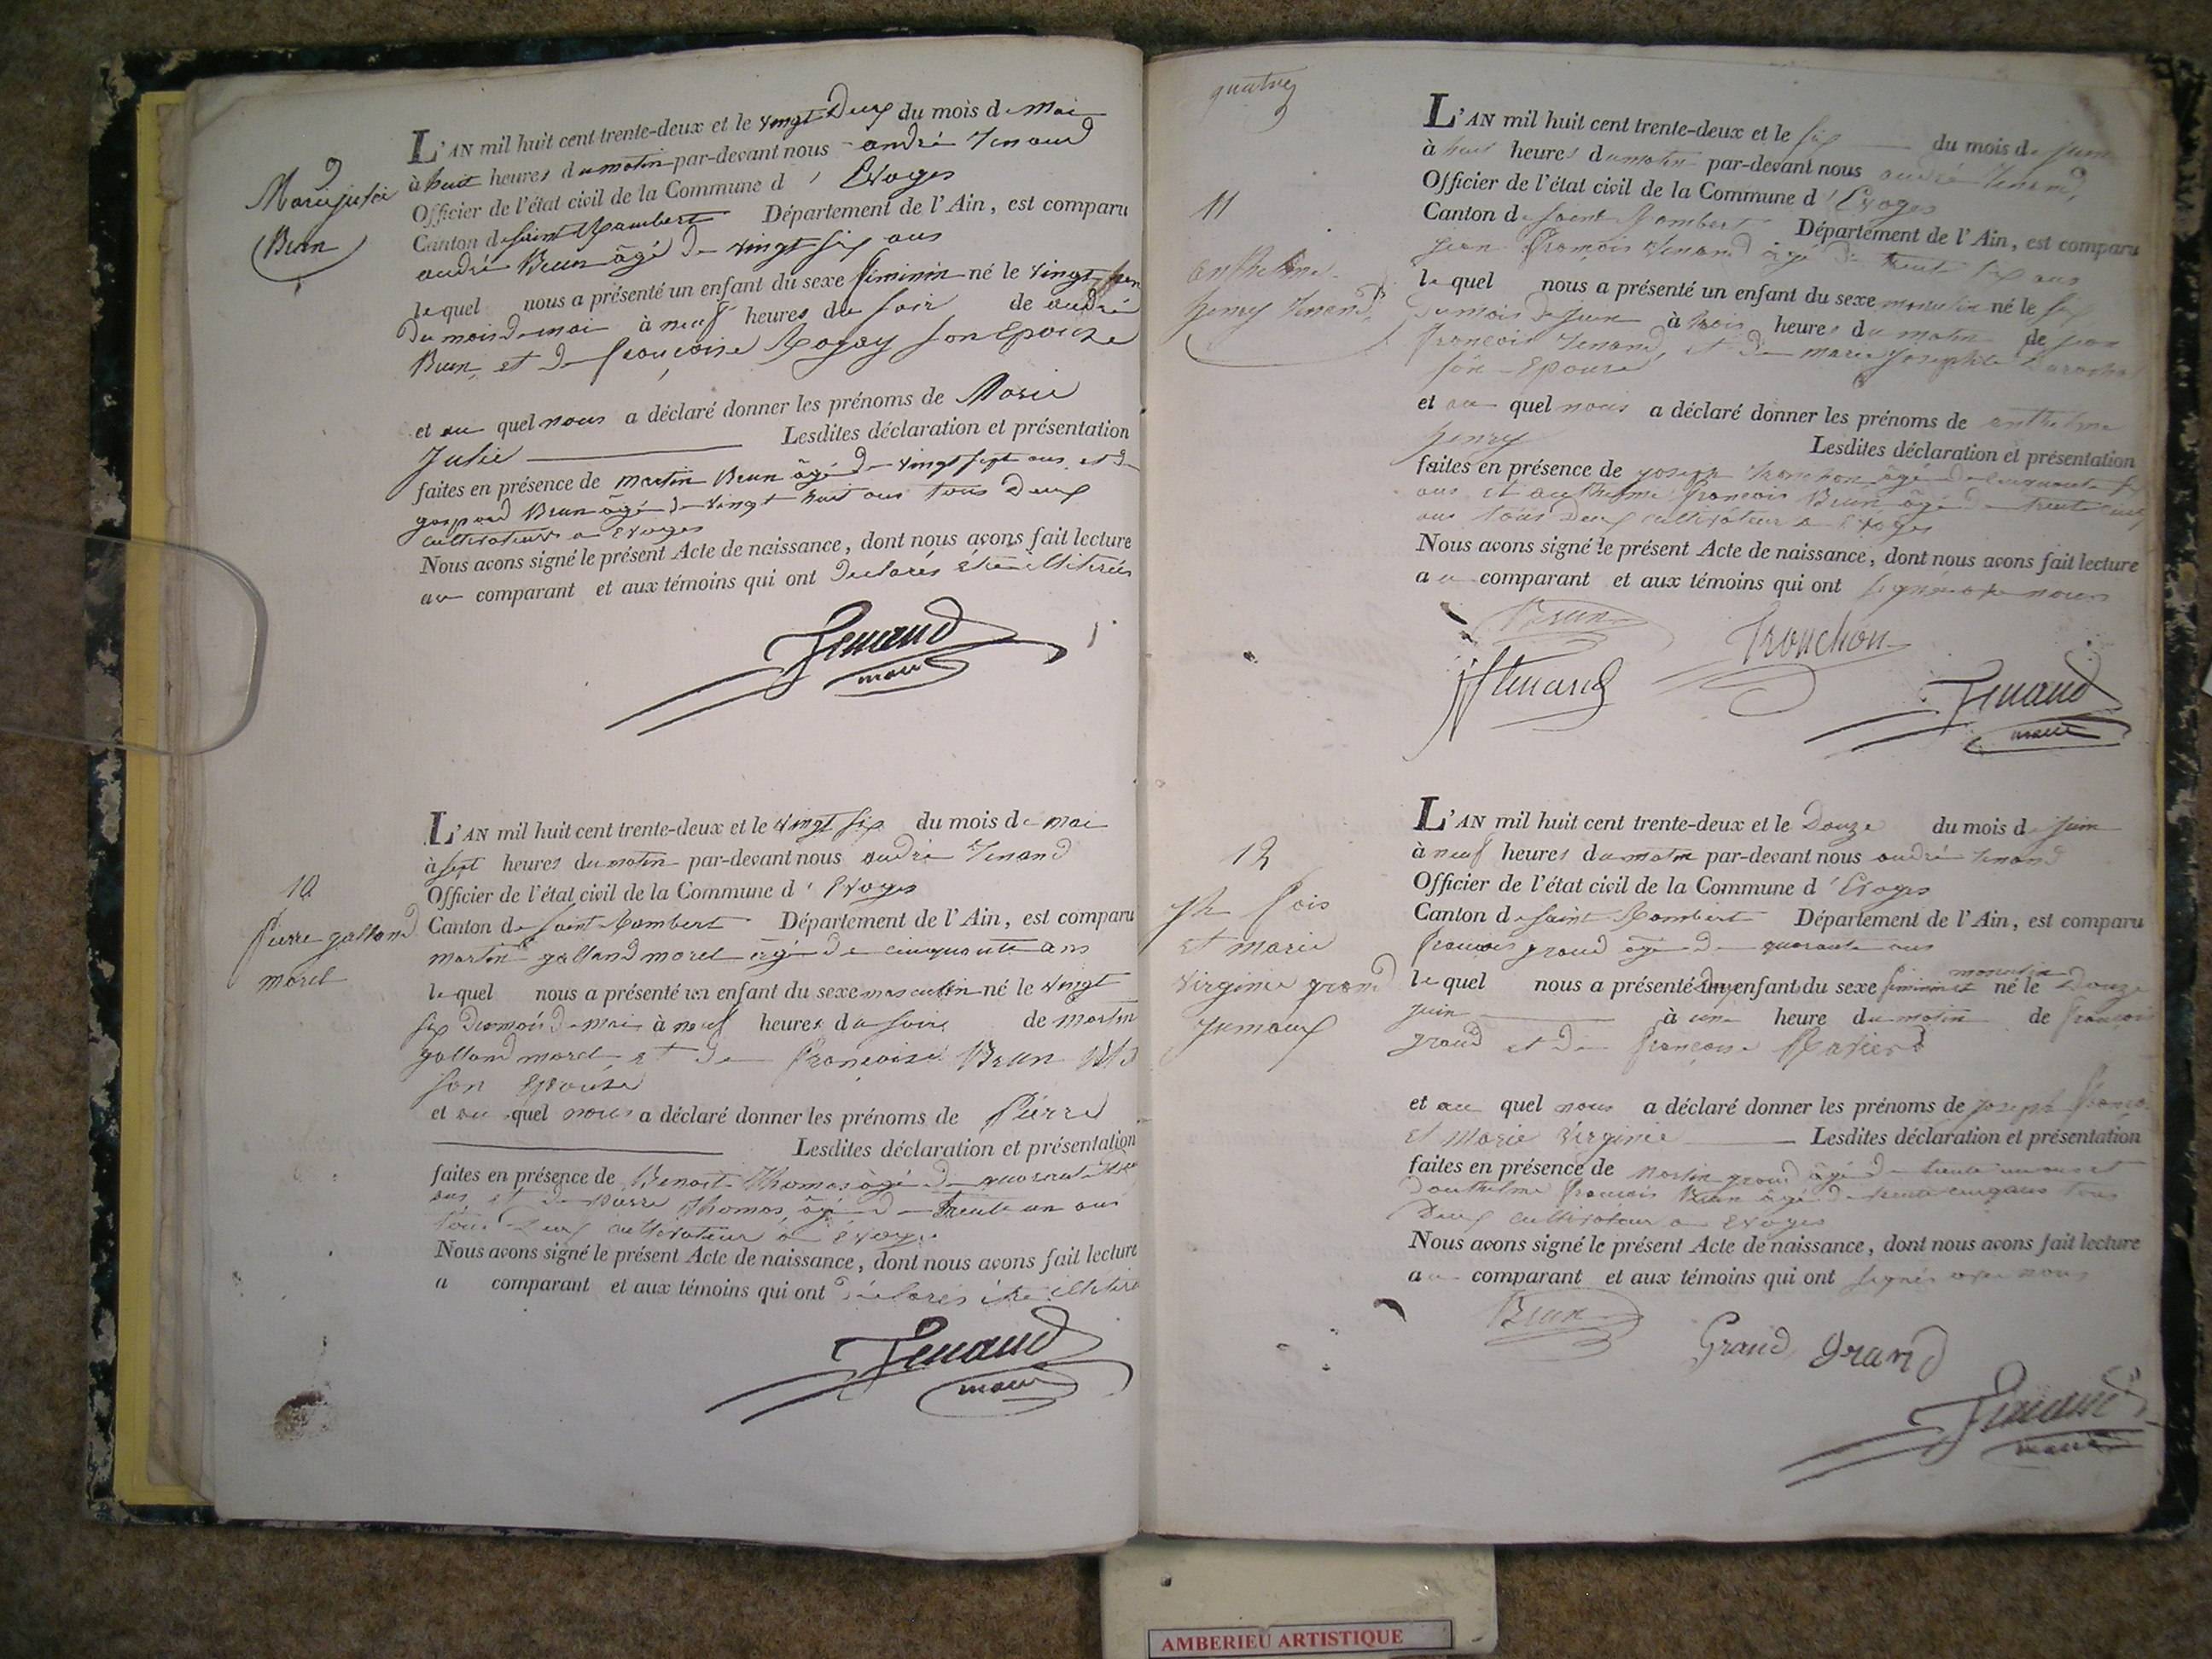 9
Marie julie
Brun
L'AN mil huit cent trente-deux et le vingt Deux du mois de Mai
à huit heures du matin par-devant nous andré Tenand
Officier de l'état civil de la Commune d' Evoges
Canton de saint Rambert Département de l'Ain, est comparu
andré Brun âgé de vingt six ans
lequel nous a présenté un enfant du sexe féminin né le vingt
du mois de mai à neuf heures du soir de andré
Brun et de françoise son Epouse
et au quel nous a déclaré donner les prénoms de Marie
Julie Lesdites déclaration et présentation
faites en présence de martin Brun âgé de vingt sept ans et de
gaspard Brun âgé de vingt huit ans tous deux
cultivateurs a Evoges
Nous avons signé le présent Acte de naissance, dont nous avons fait lecture
au comparant et aux témoins qui ont Declarés être illitirés
Tenand
maire
10
pierre galland
morel
L'AN mil huit cent trente-deux et le vingt six du mois de mai
à sept heures du matin par-devant nous andré Tenand
Officier de l'état civil de la Commune d' Evoges
Canton de saint Rambert Département de l'Ain, est comparu
martin galland morel âgé de cinquante ans
lequel nous a présenté un enfant du sexe masculin né le vingt
six du mois de mai à neuf heures du soir de martin
galland morel et de françoise Brun
son Epouse
et au quel nous a déclaré donner les prénoms de Pierre
Lesdites déclaration et présentation
faites en présence de Benoit Thomas âgé de quarante
ans et de pierre Thomas âgé de trente un ans
tous deux cultivateur a Evoges
Nous avons signé le présent Acte de naissance, dont nous avons fait lecture
a comparant et aux témoins qui ont déclarés être illitiré
Tenand
maire
quatre
11
anthelme
henry Tenand
L'AN mil huit cent trente-deux et le six du mois de juin
à huit heures du matin par-devant nous andré Tenand,
Officier de l'état civil de la Commune d' Evoges
Canton de saint Rambert Département de l'Ain, est comparu
jean françois Tenand âgé de trente six ans
lequel nous a présenté un enfant du sexe masculin né le six
du mois de juin à trois heures du matin de jean
françois Tenand, et de marie josephte
son Epouse
et au quel nous a déclaré donner les prénoms de anthelme
henry Lesdites déclaration et présentation
faites en présence de joseph tronchon âgé de cinquante
ans et anthelme françois Brun âgé de trente cinq
ans tous deux cultivateur a Evoges
Nous avons signé le présent Acte de naissance, dont nous avons fait lecture
au comparant et aux témoins qui ont signé avec nous
Brun
Tronchon
Tenand
Tenand
maire
12
jh fois
et marie
virginie grand
jumaux
L'AN mil huit cent trente-deux et le Douze du mois de juin
à neuf heures du matin par-devant nous andré Tenand
Officier de l'état civil de la Commune d' Evoges
Canton de saint Rambert Département de l'Ain, est comparu
françois grand âgé de quarante ans
masculin
lequel nous a présenté Deux enfant du sexe feminin et né le Douze
juin à une heure du matin de françois
grand et de françoise
et au quel nous a déclaré donner les prénoms de joseph
et Marie Virginie Lesdites déclaration et présentation
faites en présence de Martin grand âgé de trente un ans et
D'anthelme françois Brun âgé de trente cinq ans tous
Deux cultivateur a Evoges
Nous avons signé le présent Acte de naissance, dont nous avons fait lecture
au comparant et aux témoins qui ont signés avec nous
Brun
Grand grand
Tenand
maire
AMBERIEU ARTISTIQUE